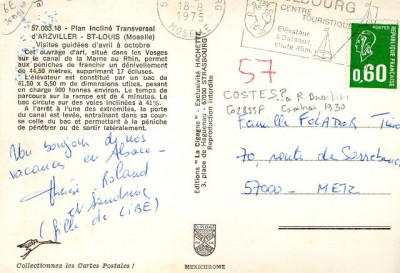 57.053.18 - Plan Incliné Transversal
d'ARZVILLER - ST-LOUIS (Moselle)
Visites guidées d'avril à octobre
Cet ouvrage d'art, situé dans les Vosges
sur le canal de la Marne au Rhin, permet
aux péniches de franchir un dénivellement
de 44,50 mètres, supprimant 17 écluses.
L'élévateur est constitué par un bac de
41,50 x 5,50 m de dimensions utiles, pesant
en charge 900 tonnes environ. Le temps de
parcours sur la rampe est de 4 minutes. Le
bac circule sur des voies inclinées à 41%.
A l'arrêt à l'une des extrémités, la porte
du canal est levée, entraînant dans sa
course celle du bac et permettant à la péniche
de pénétrer ou de sortir latéralement.
Un bonjour de nos
vacances en Alsace
Roland
et Sandrine
(fille de
Collectionnez les Cartes Postales !
Editions "La Cigogne" - Exclusivité HACHETTE
3, place de Haguenau - 67000 STRASBOURG
Reproduction interdite
MEXICHROME
18-8
1975
MOSELLE
BOURG
CENTRE
TOURISTIQUE
Elévateur
à bateaux
chute 45m.
0,60
57
COSTES P.
1930
Famille
70, route de
57000 - METZ